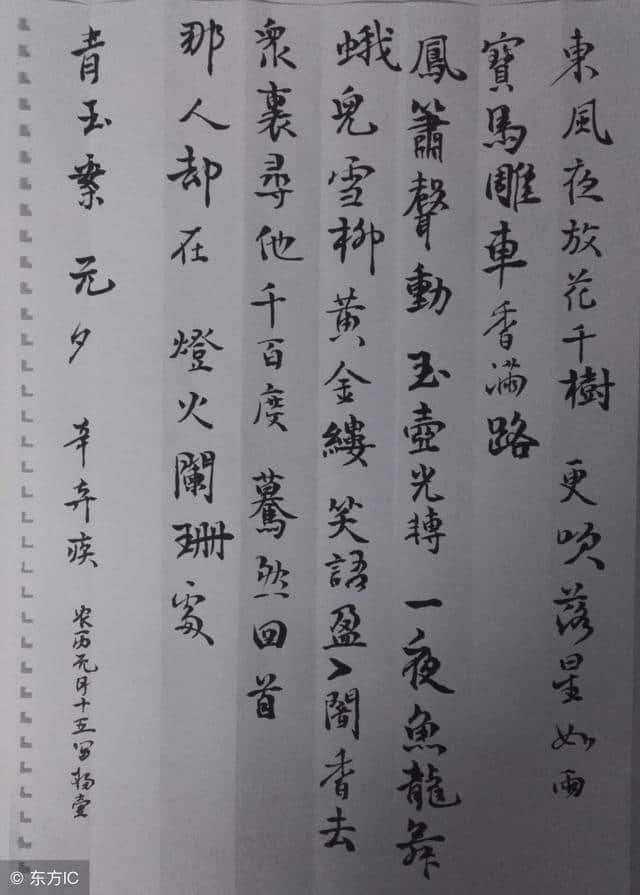 東風夜放花千樹 更吹落星如雨
寶馬雕車香滿路
鳳簫聲動 玉壺光轉 一夜魚龍舞
蛾兒雪柳黄金縷 笑語盈〻闇香去
衆裏尋他千百度 驀然回首
那人却在 燈火闌珊處
青玉案 元夕 辛弃疾
农历元月十五写
© 东方IC